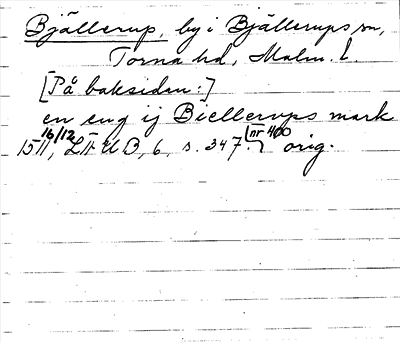 Bjällerup, by i Bjällerups sn,
Torna hd, Malm. l.
[På baksidan:]
en eng ij Biellerups mark
1511 16/12, LÄUB, 6, s. 347. [nr 400] orig.